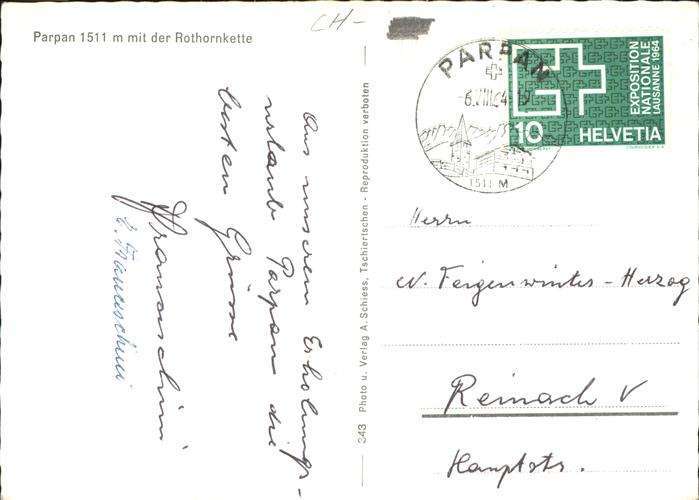 Parpan 1511 m mit der Rothornkette
CH-
Aus unserem Erholungs-
urlaub Parpan die
besten Grüsse
Franceschini
C. Franceschini
243 Photo u. Verlag A. Schiess, Tschiertschen - Reproduktion verboten
PARPAN
1511 M
EXPOSITION
NATIONALE
LAUSANNE 1964
10 HELVETIA
Herrn
W. Feigenwinter-Herzog
Reinach
Hauptstr.